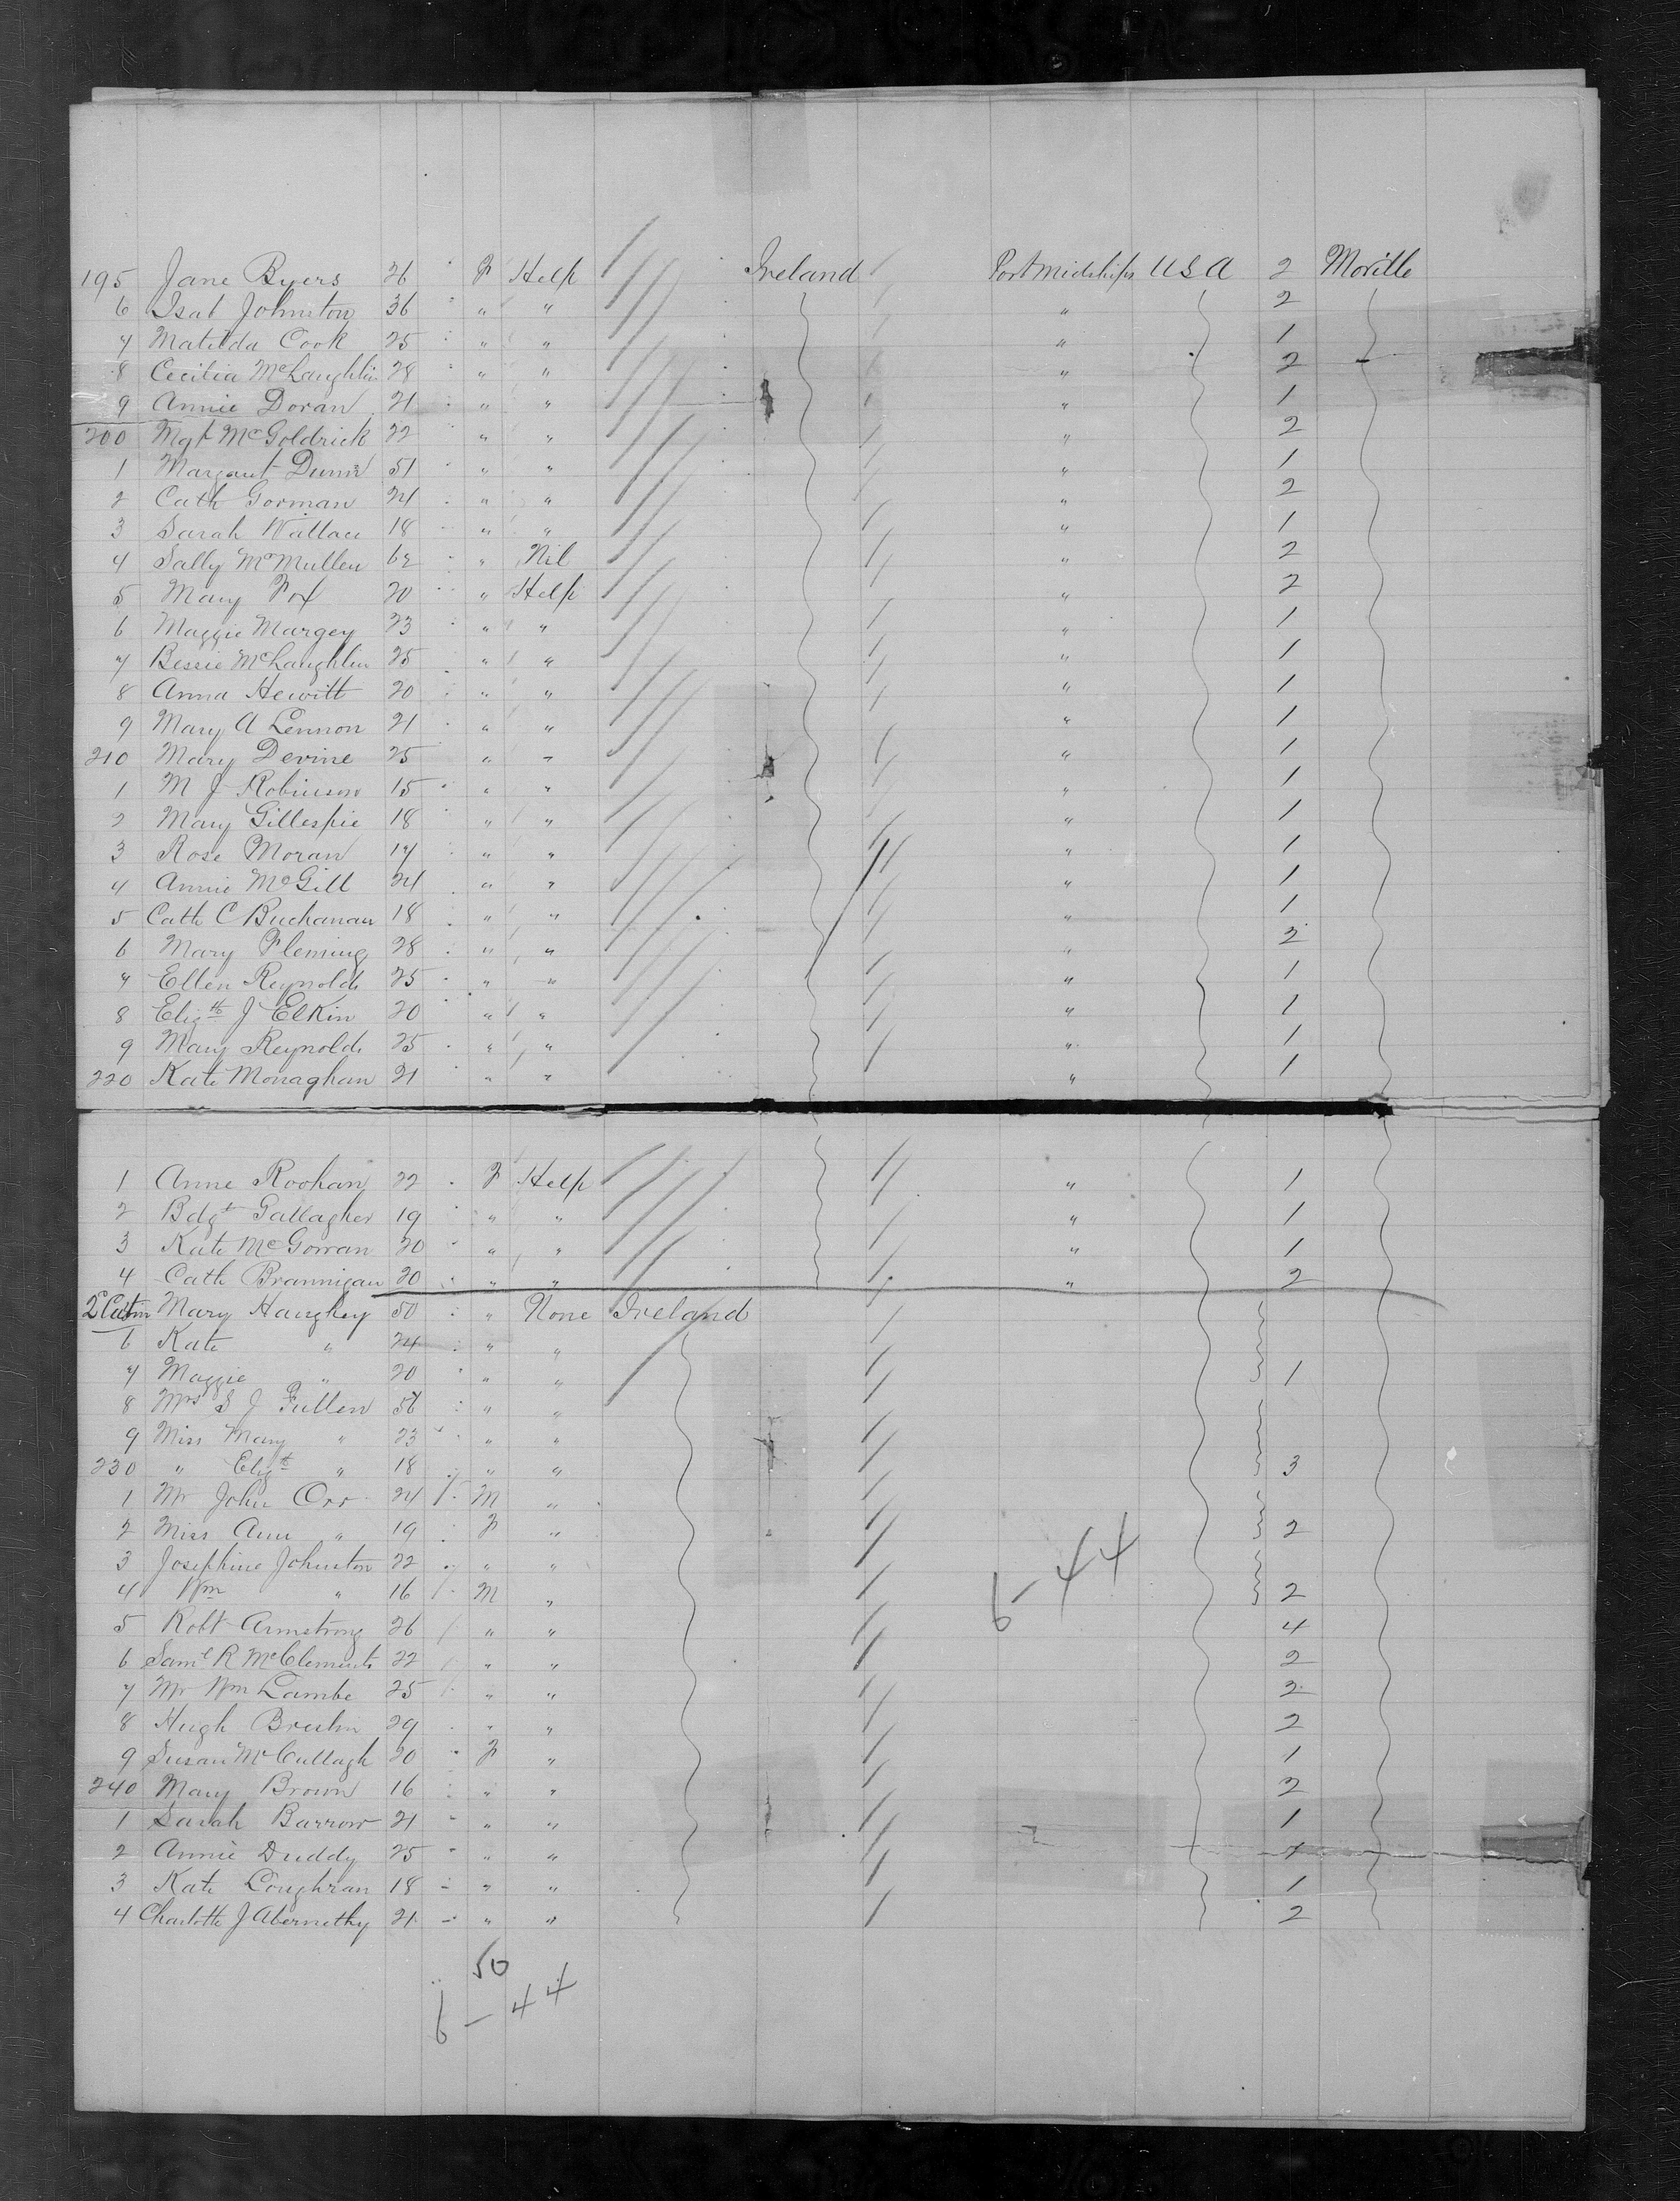 195 Jane Byers 26 F Help Ireland Port midships U S A 2 Moville
6 Isab Johnston 36 " " " 2
7 Matilda Cook 25 " " " 1
8 Cecilia McLaughlin 28 " " " 2
9 Annie Doran 21 " " " 1
200 Mgt McGoldrick 22 " " " 2
1 Margaret Dunn 51 " " " 1
2 Cath Gorman 24 " " " 2
3 Sarah Wallace 18 " " " 1
4 Sally McMullen 62 " Nil " 2
5 Mary Fox 20 " Help " 2
6 Maggie Margey 23 " " " 1
7 Bessie McLaughlin 25 " " " 1
8 Anna Hewitt 20 " " " 1
9 Mary A Lennon 21 " " " 1
210 Mary Devine 25 " " " 1
1 M J Robinson 15 " " " 1
2 Mary Gillespie 18 " " " 1
3 Rose Moran 17 " " " 1
4 Annie McGill 24 " " " 1
5 Cath C Buchanan 18 " " " 1
6 Mary Fleming 28 " " " 2
7 Ellen Reynolds 25 " " " 1
8 Elizth J Elkin 20 " " " 1
9 Mary Reynolds 25 " " " 1
220 Kate Monaghan 21 " " " 1
1 Anne Roohan 22 F Help " 1
2 Bdgt Gallagher 19 " " " 1
3 Kate McGowan 20 " " " 1
4 Cath Brannigan 20 " " " 2
2 Cabin Mary Haughey 50 " None Ireland
6 Kate " 24 " "
7 Maggie " 20 " " 1
8 Mrs S J Fullen 56 " "
9 Miss Mary " 23 " "
230 " Elizth " 18 " " 3
1 Mr John Orr 24 M "
2 Miss Ann " 19 F " 2
3 Josephine Johnston 22 " "
4 Wm " 16 M " 2
6-44
5 Robt Armstrong 26 " " 4
6 Saml R McClements 22 " " 2
7 Mr Wm Lambe 25 " " 2
8 Hugh Breslin 29 " " 2
9 Susan McCullagh 20 F " 1
240 Mary Brown 16 " " 2
1 Sarah Barrow 21 " " 1
2 Annie Duddy 25 " "
3 Kate Loughran 18 " " 1
4 Charlotte J Abernethy 21 " " 2
50
6-44